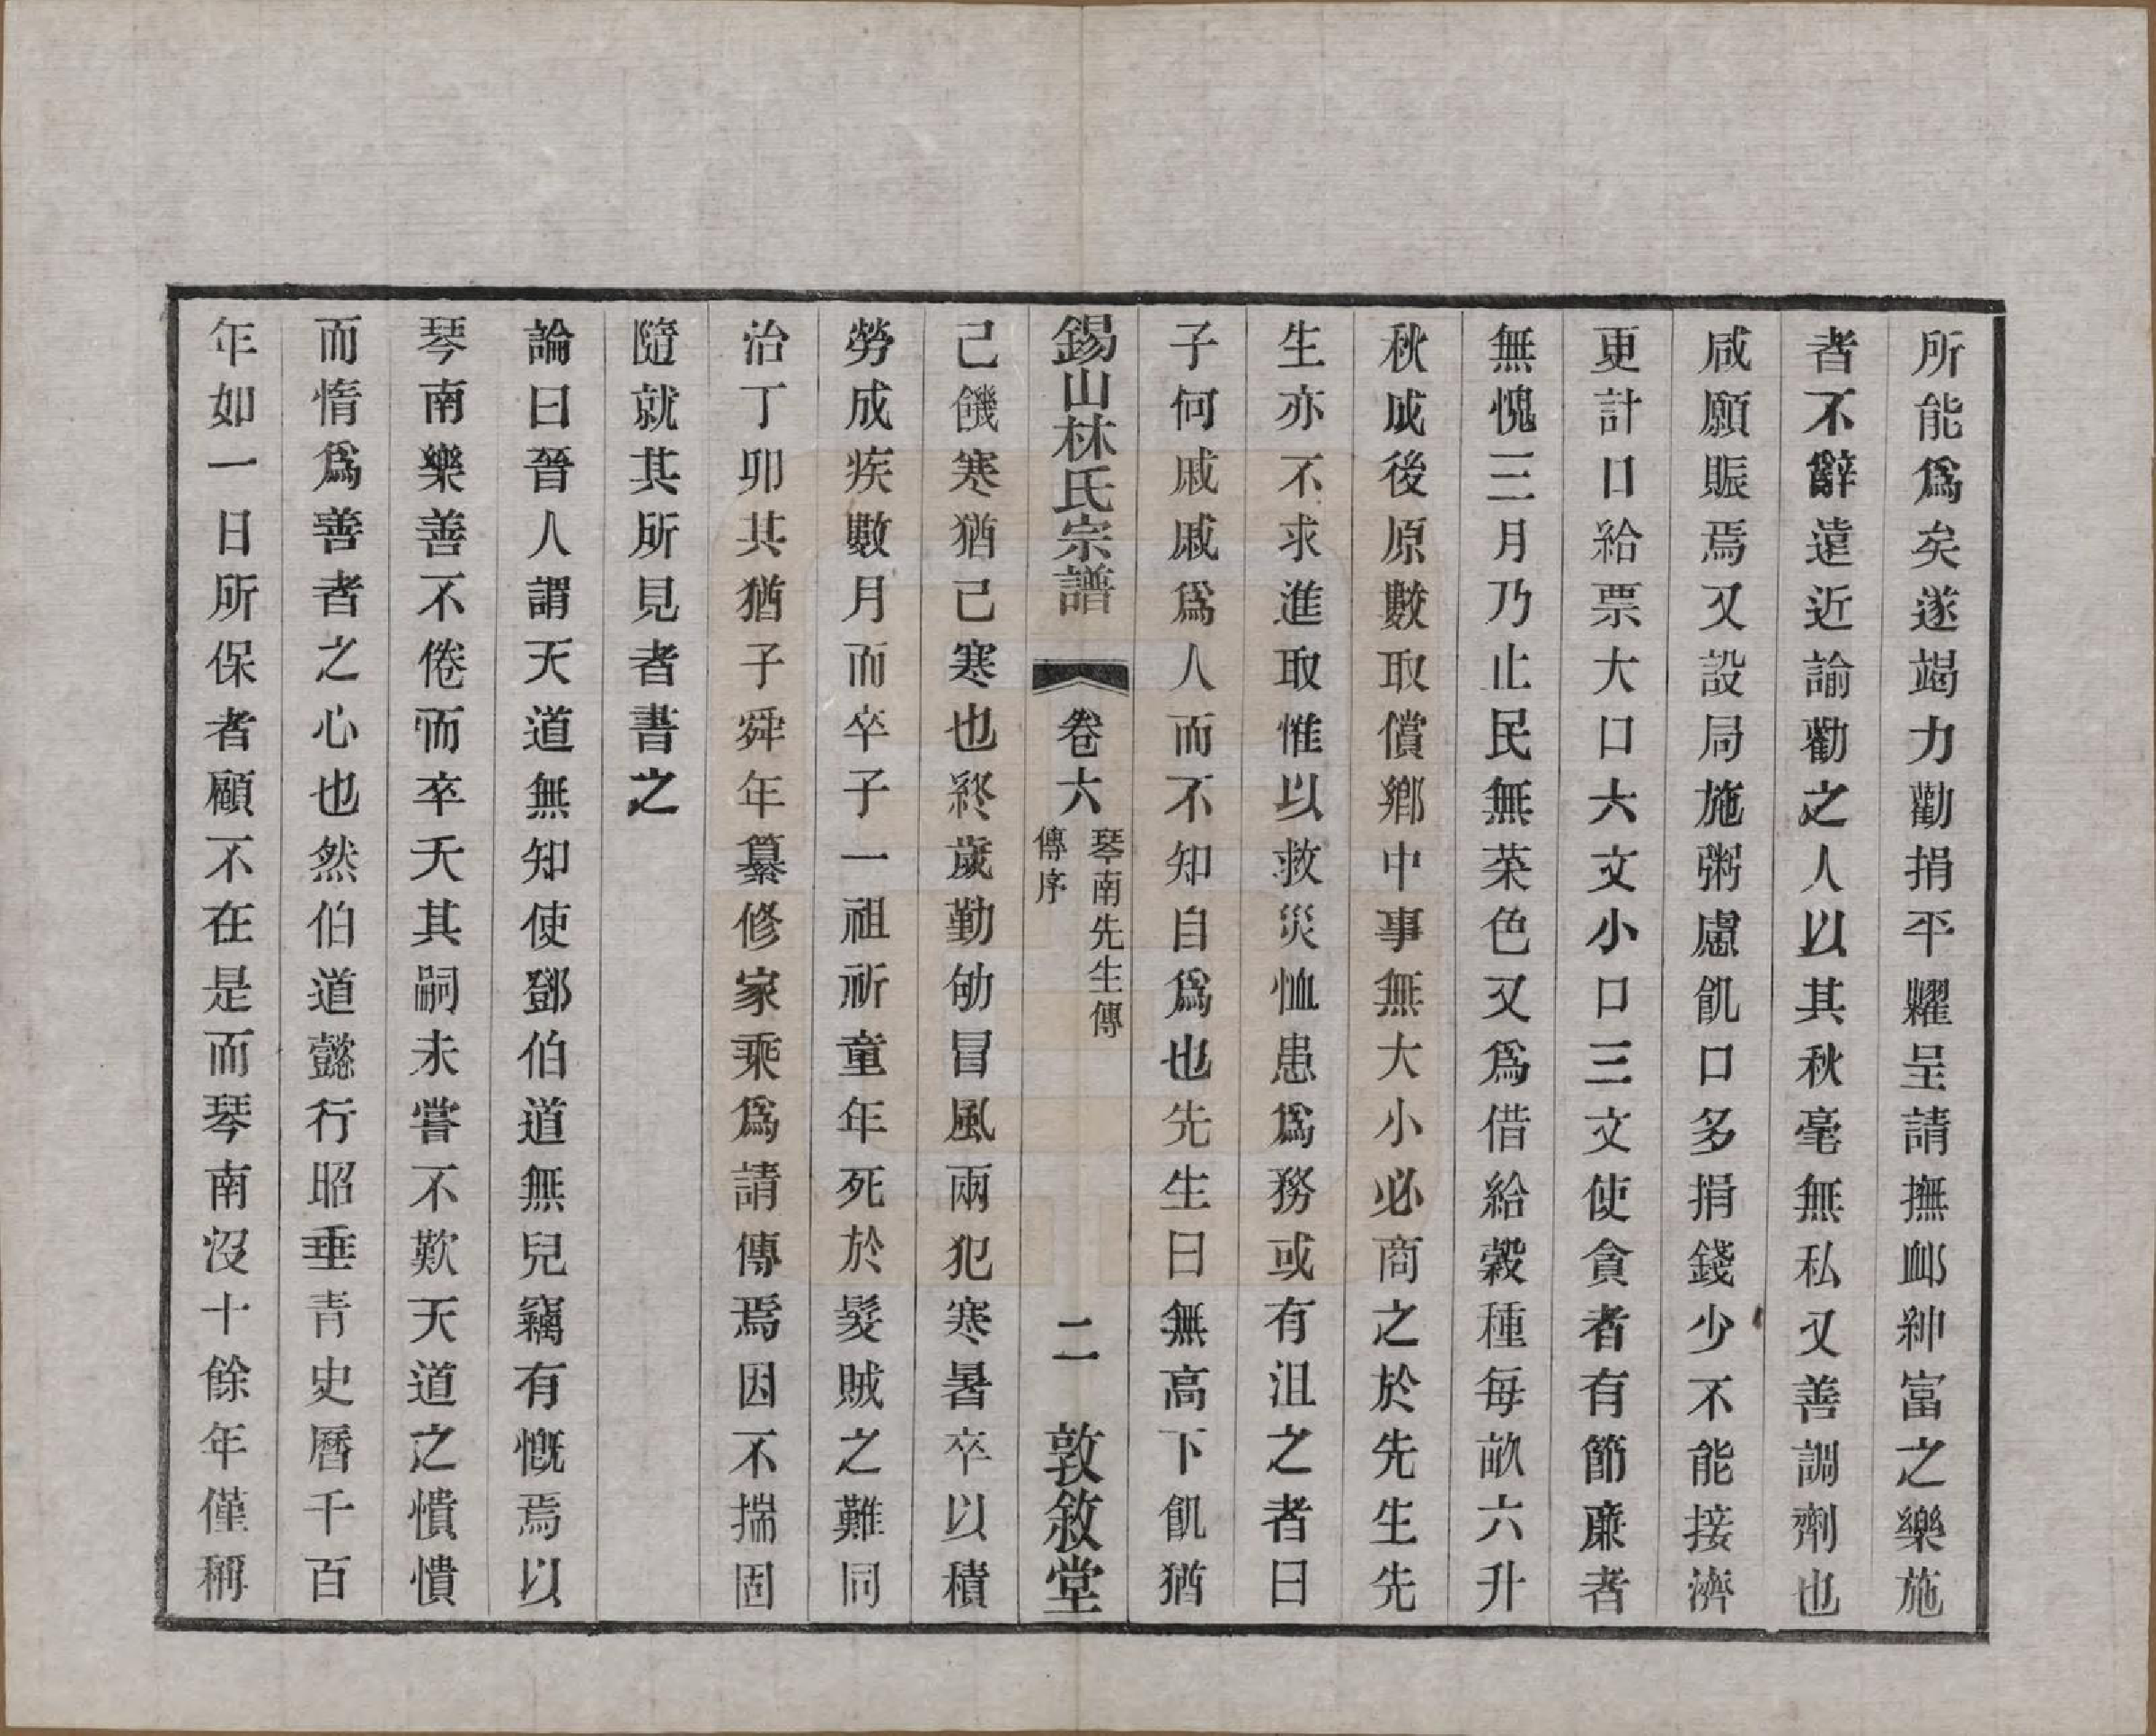 所能爲矣遂竭力勸捐平糶呈請撫卹紳富之樂施
者不辭遠近諭勸之人以其秋毫無私又善調劑也
咸願賑焉又設局施粥慮飢口多捐錢少不能接濟
更計口給票大口六文小口三文使貪者有節廉者
無愧三月乃止民無菜色又爲借給穀種每畝六升
秋成後原數取償鄉中事無大小必商之於先生先
生亦不求進取惟以救災恤患爲務或有沮之者曰
子何戚戚爲人而不知自爲也先生曰無高下飢猶
錫山林氏宗譜 卷六 琴南先生傳 傳序 二 敦敘堂
己饑寒猶己寒也終歲勤劬冒風雨犯寒暑卒以積
勞成疾數月而卒子一祖祈童年死於髮賊之難同
治丁卯其猶子舜年纂修家乘爲請傳焉因不揣固
隨就其所見者書之
論曰晉人謂天道無知使鄧伯道無兒竊有慨焉以
琴南樂善不倦而卒夭其嗣未嘗不歎天道之憒憒
而惰爲善者之心也然伯道懿行昭垂青史曆千百
年如一日所保者顧不在是而琴南沒十餘年僅稱